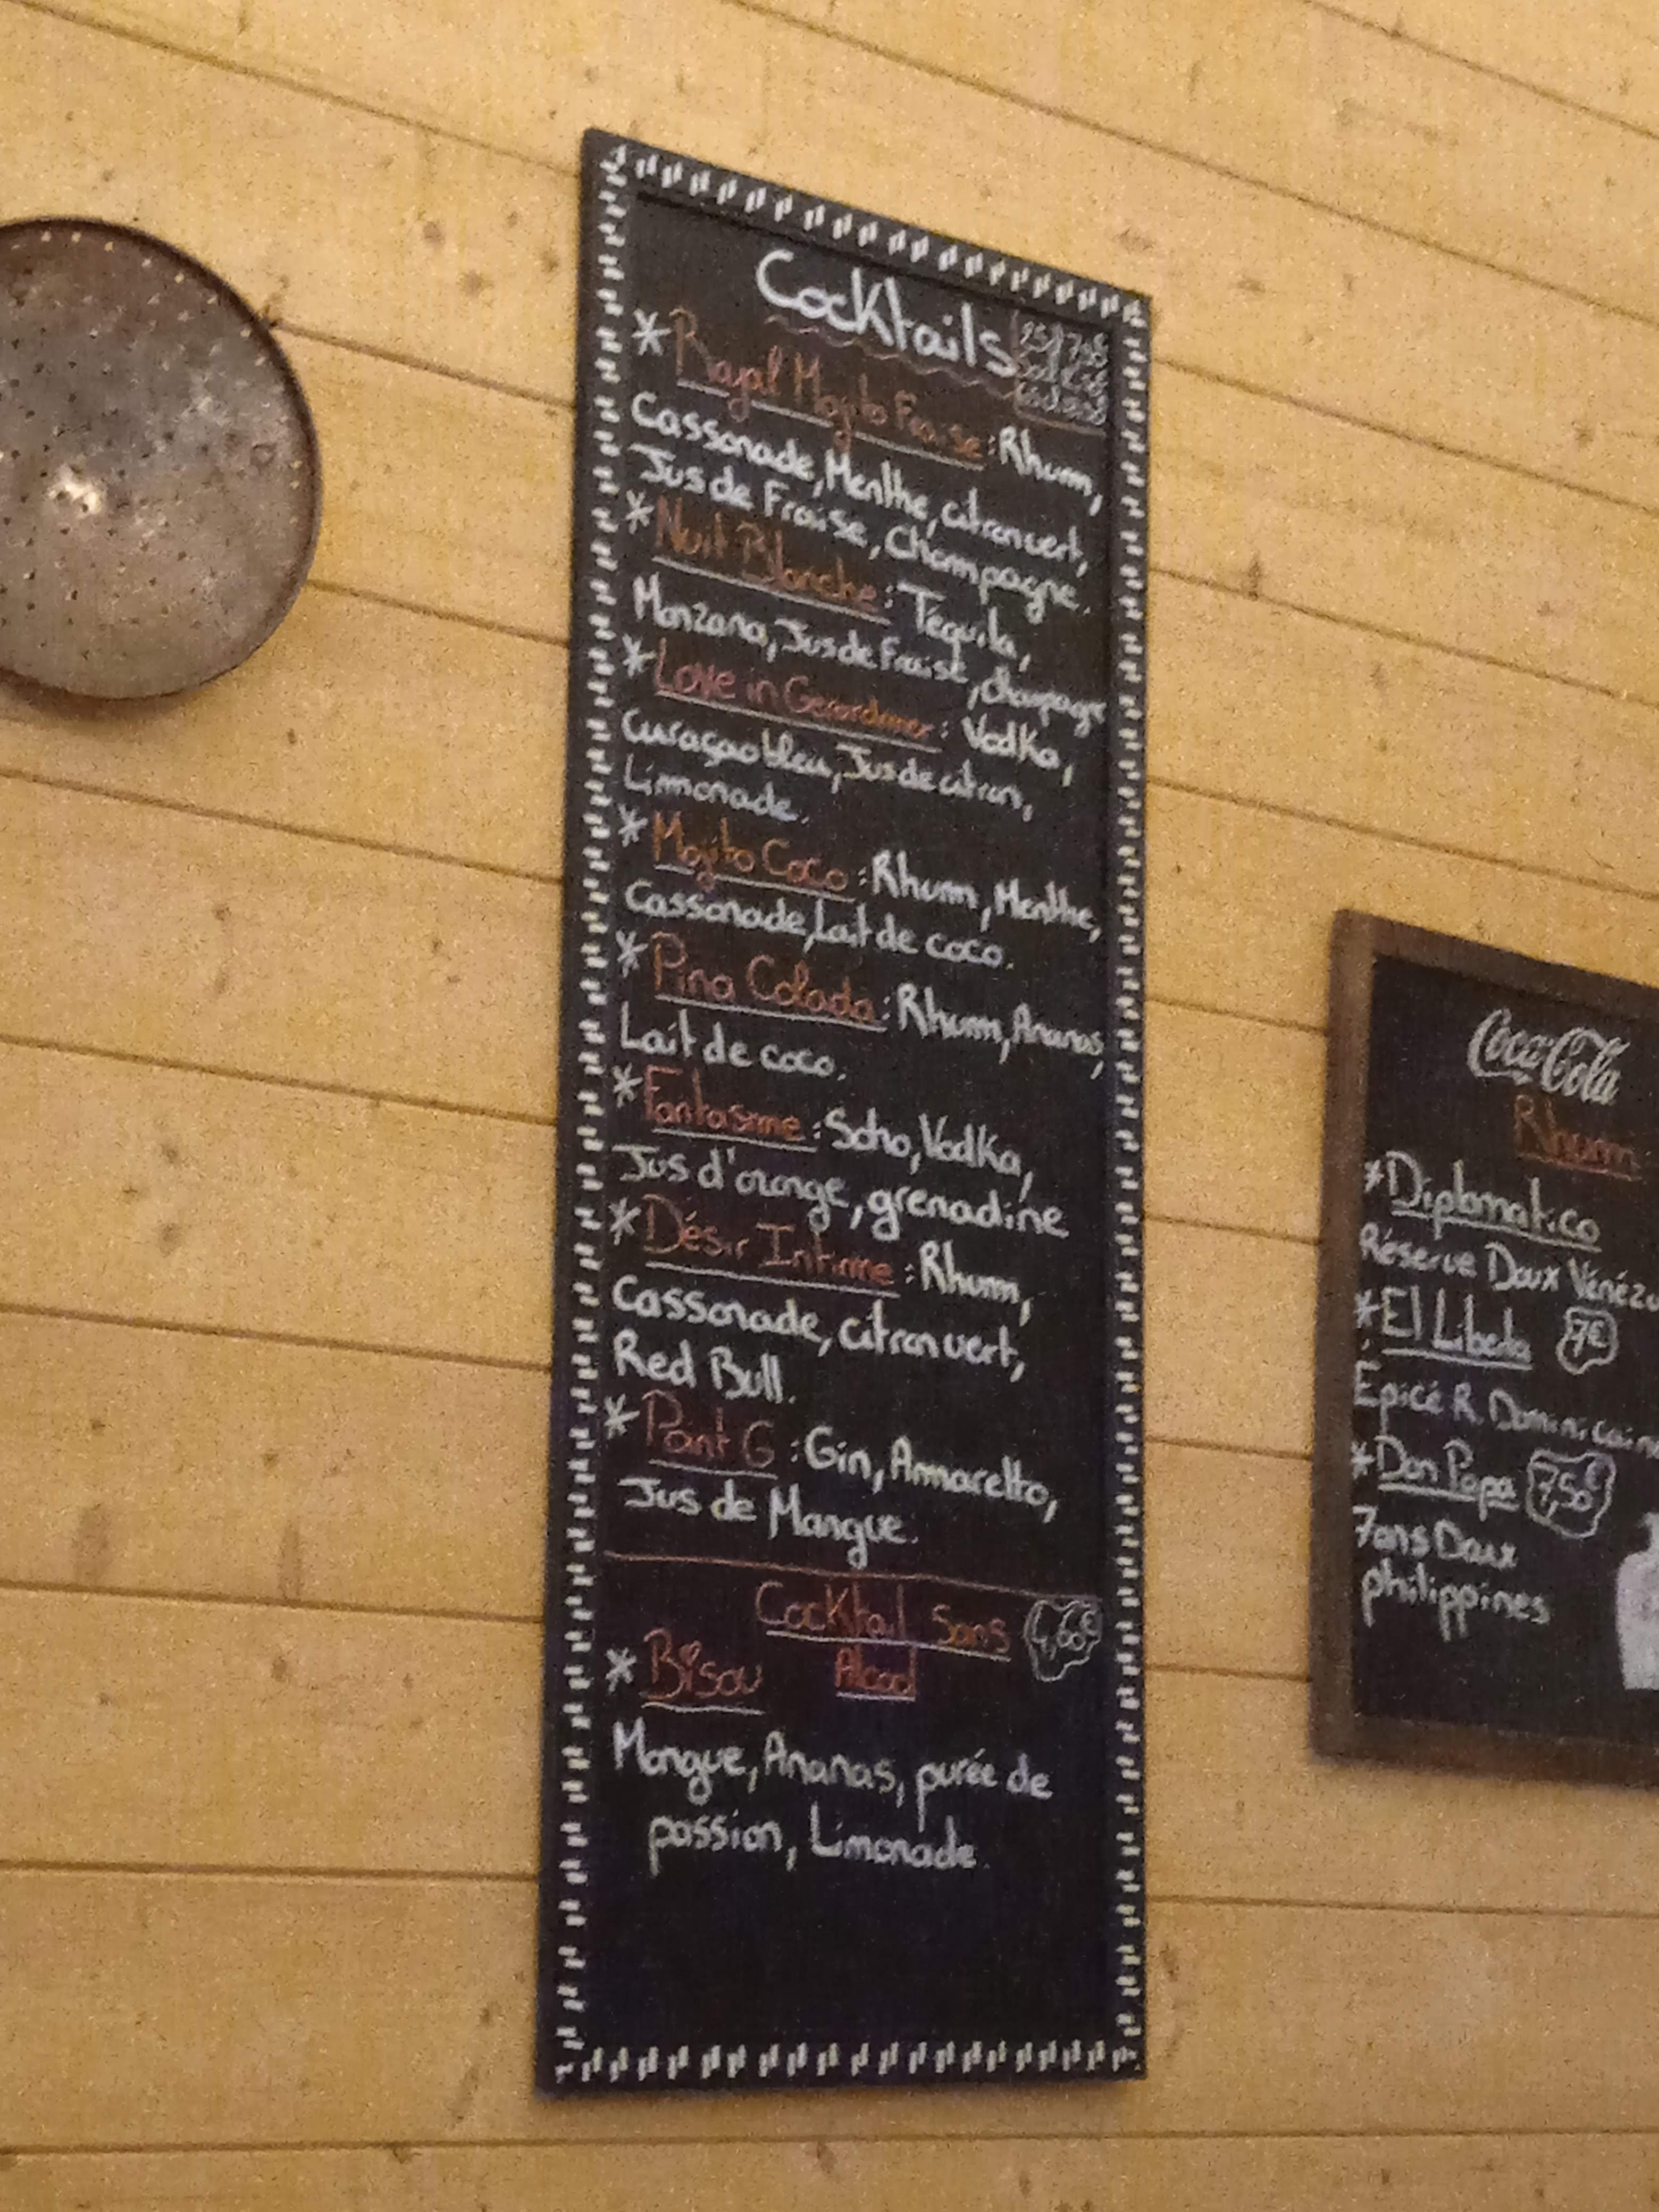 Cocktails
* Royal Mojito Fraise : Rhum,
Cassonade, Menthe, citron vert,
Jus de Fraise, Champagne.
* Nuit Blanche : Téquila,
Manzana, Jus de Fraise, champagne
* Love in Gerardmer : Vodka,
Curaçao bleu, Jus de citron,
Limonade.
* Mojito Coco : Rhum, Menthe,
Cassonade, Lait de coco.
* Pina Colada : Rhum, Ananas,
Lait de coco.
* Fantasme : Soho, Vodka,
Jus d'orange, grenadine
* Désir Intime : Rhum,
Cassonade, citron vert,
Red Bull.
* Point G : Gin, Amaretto,
Jus de Mangue.
Cocktail Sans
Alcool
* Bisou
Mangue, Ananas, purée de
passion, Limonade.
Coca-Cola
Rhum
* Diplomatico
Réserve Doux Vénézu
* El Libertad 7€
Epicé R. Dominicaine
* Don Papa 7,50€
7ans Doux
philippines